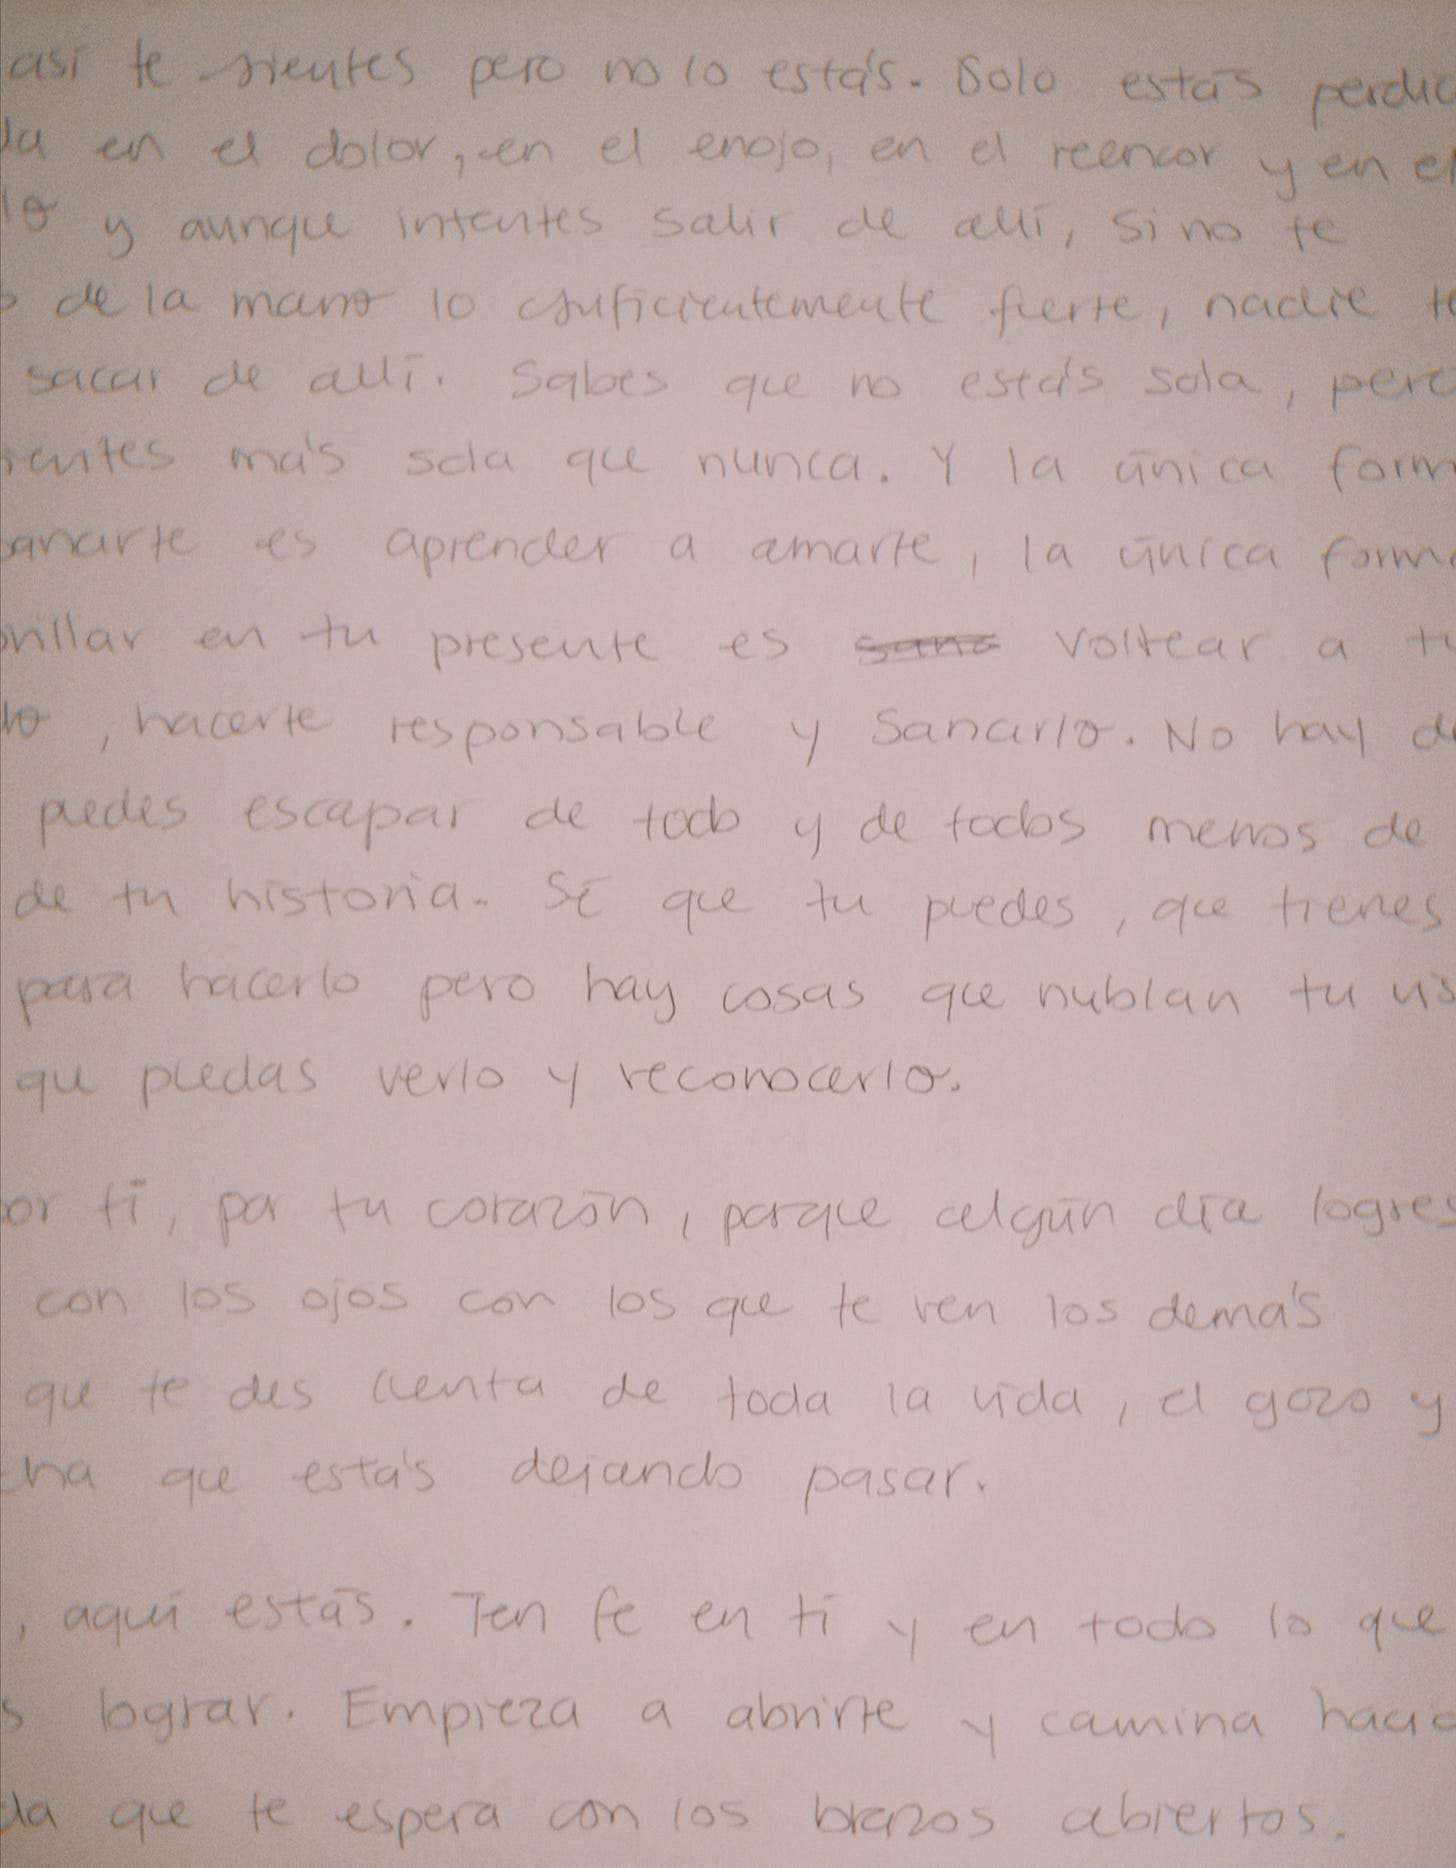 así te sientes pero no lo estás. Solo estás perdid
da en el dolor, en el enojo, en el reencor y en el
y aunque intentes salir de allí, si no te
de la mano lo suficientemente fuerte, nadie te
sacar de allí. Sabes que no estás sola, pero
ientes más sola que nunca. Y la única form
sanarte es aprender a amarte, la única forma
brillar en tu presente es voltear a tu
do, hacerte responsable y sanarlo. No hay de
puedes escapar de todo y de todos menos de
de tu historia. Sé que tu puedes, que tienes
para hacerlo pero hay cosas que nublan tu vis
que puedas verlo y reconocerlo.
por ti, por tu corazón, porque algún día logres
con los ojos con los que te ven los demás
que te des cuenta de toda la vida, el gozo y
cha que estás dejando pasar.
, aquí estás. Ten fe en ti y en todo lo que
s lograr. Empieza a abrirte y camina hacia
da que te espera con los brazos abiertos.